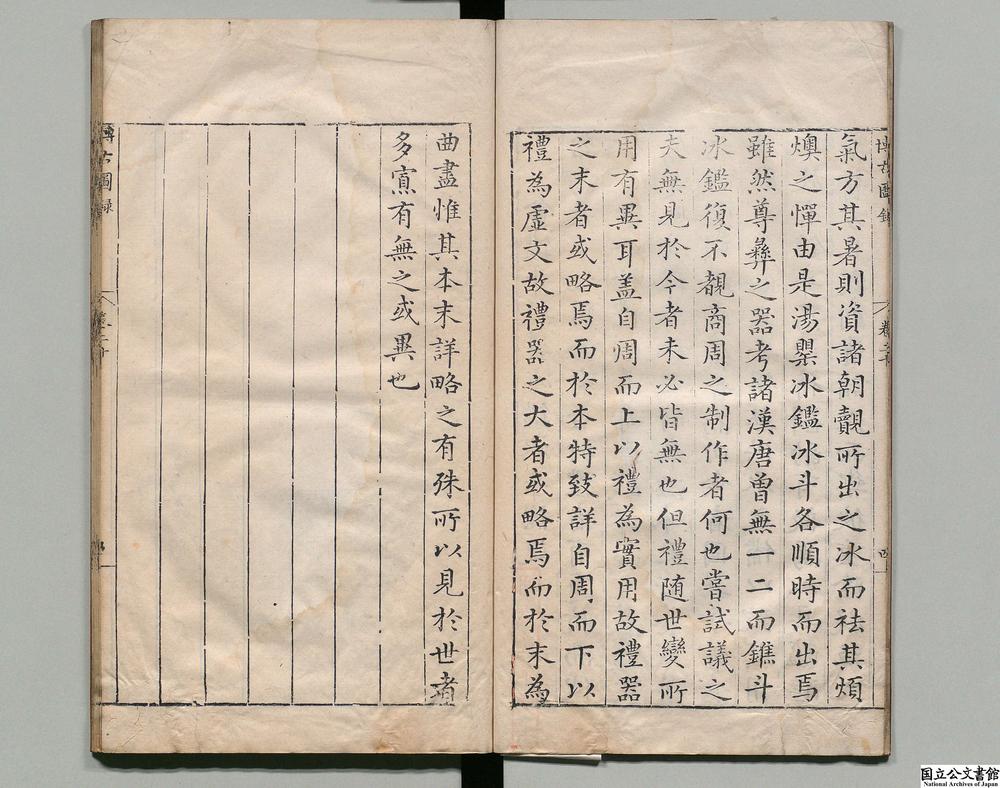 博古圖錄
卷二十
四
氣方其暑則資諸朝覿所出之冰而祛其煩
燠之憚由是湯㽅冰鑑冰斗各順時而出焉
雖然尊彝之器考諸漢唐曾無一二而鐎斗
冰鑑復不覩商周之制作者何也嘗試議之
夫無見於今者未必皆無也但禮随世變所
用有異耳盖自周而上以禮為實用故禮器
之末者或略焉而於本特致詳自周而下以
禮為虛文故禮器之大者或略焉而於末為
曲盡惟其本末詳略之有殊所以見於世者
多寡有無之或異也
博古圖錄
国立公文書館
National Archives of Japan